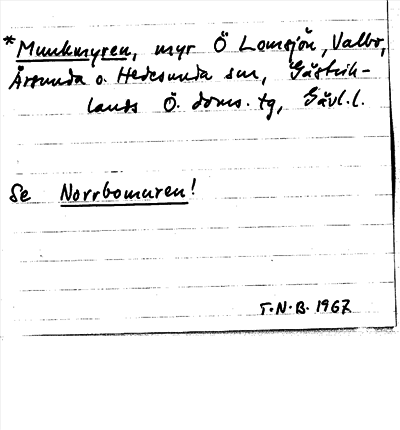 *Munkmyren, myr Ö Lomsjön, Valbo,
Årsunda o. Hedesunda snr, Gästrik-
lands Ö. doms. tg, Gävl. l.
Se Norrbomuren!
T.N.B. 1967